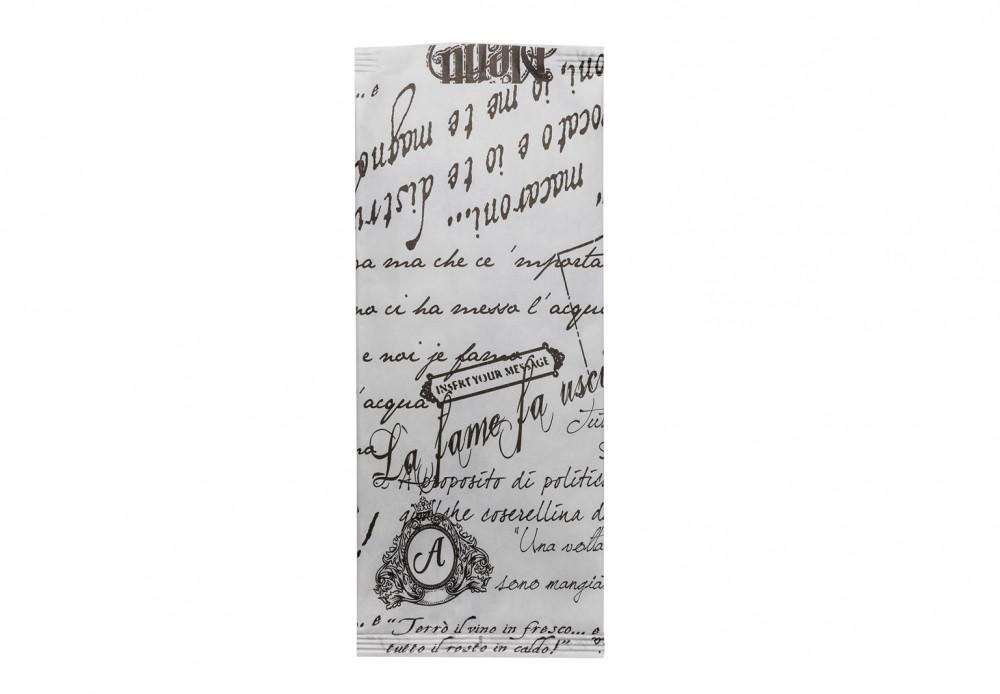 Menu
.. e
oni,
io me te magno
ocato e io te distru
macaroni..."
a ma che ce 'mporta
no ci ha messo l'acqua
e noi je famo
INSERT YOUR MESSAGE
'acqua
La fame fa usci
na
A proposito di politic
che coserellina d
"Una volta
A
sono mangia
.. e "Terrò il vino in fresco... e
tutto il resto in caldo!"